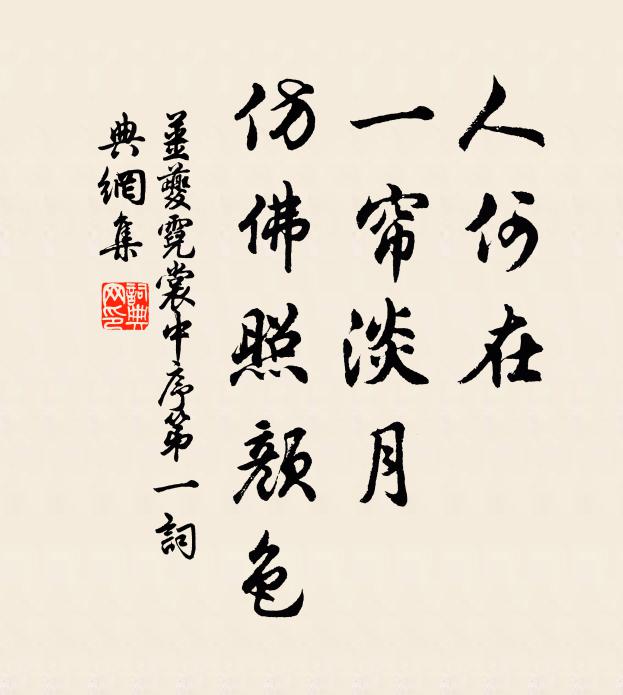 人何在
一帘淡月
仿佛照颜色
姜夔霓裳中序第一詞
典網集
詞典
网印